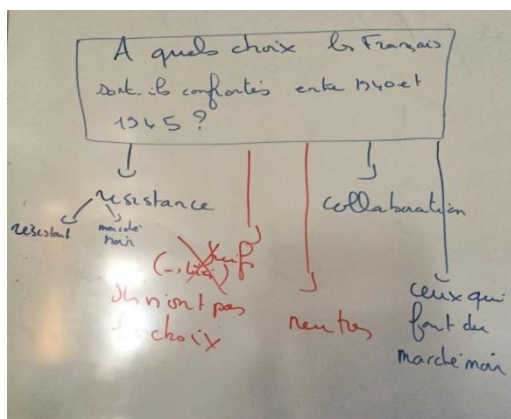 A quels choix les Français
sont-ils confrontés entre 1940 et
1945 ?
résistance
résistant
marché
noir
Juif
ils n'ont pas
choix
neutres
collaboration
ceux qui
font du
marché noir